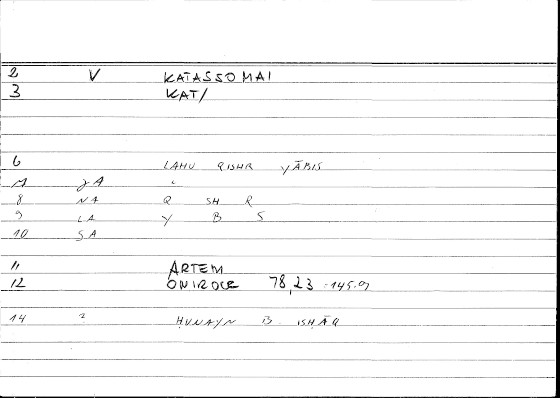 2 V KATASSOMAI
3 KAT/
6 LAHU QISHR YĀBIS
M JA "
8 NA Q SH R
9 LA Y B S
10 SA
11 ARTEM
12 ONIROCR 78,23 = 145.9
14 2 ḤUNAYN B. ISḤĀQ